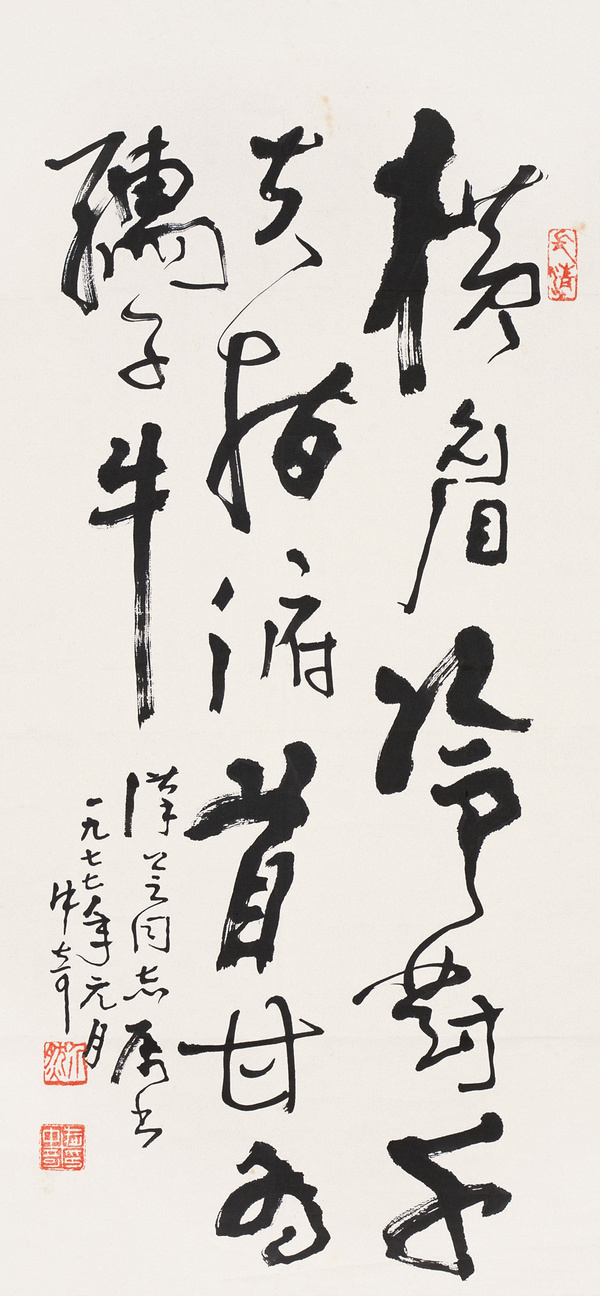 横眉冷對千
夫指俯首甘为
孺子牛
漢同志属书
一九七七年元月
中奇